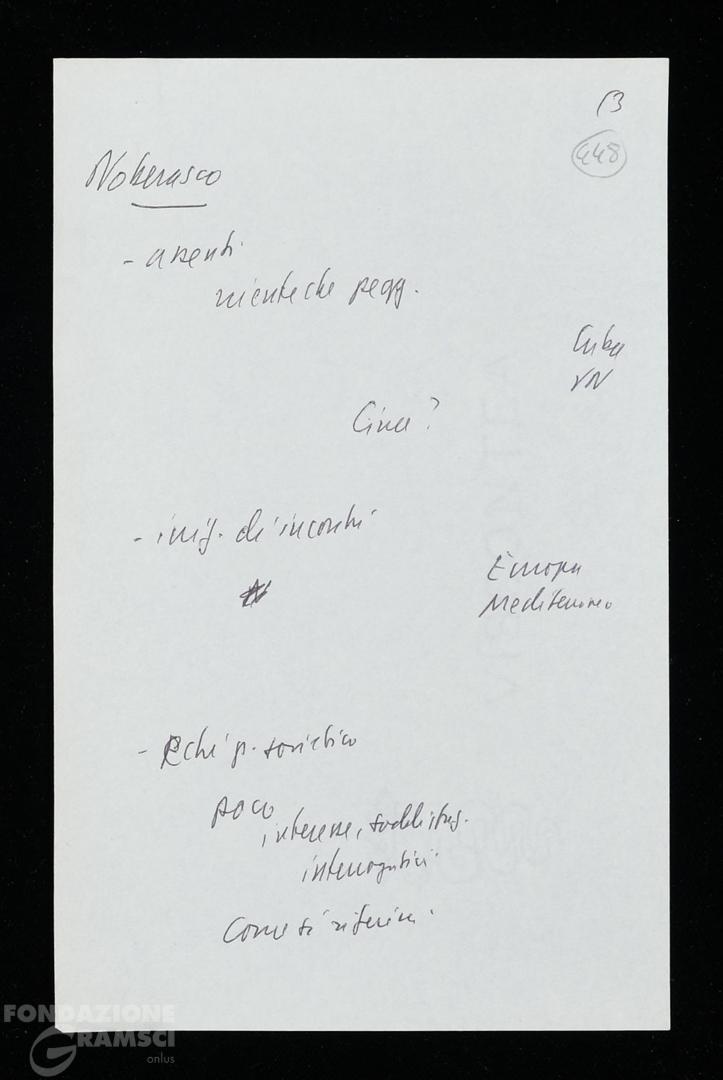 13
448
Noberasco
- assenti
niente che pegg.
Cuba
VN
Cina?
- di incontri
Europa
Mediterraneo
- Echi p. sovietico
poco
interesse, soddisfaz.
interrogativi
Come si riferirà
FONDAZIONE
GRAMSCI
onlus